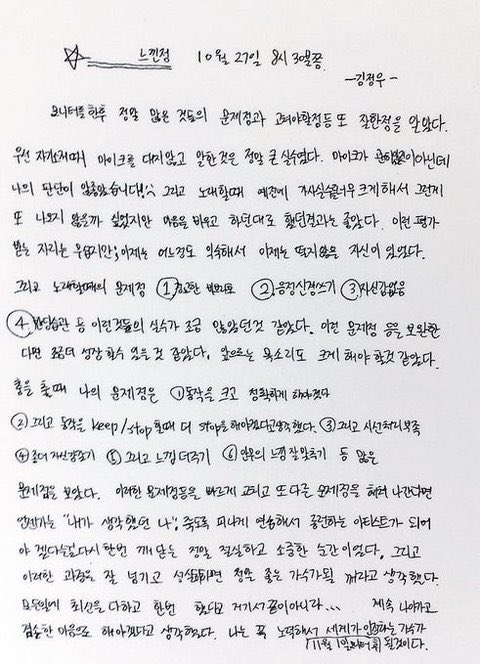 느낀점 10월 27일 8시 30분쯤
-김정우-
모니터를 한후 정말 많은 것들의 문제점과 고쳐야할점등 또 잘한점을 알았다.
우선 자기소개때 마이크를 대지않고 말한것은 정말 큰 실수였다. 마이크가 아닌데
나의 판단이 않좋았습니다!^^; 그리고 노래할때 예전에 자신감을 너무 크게해서 그런지
또 나오지 않을까 싶었지만 마음을 비우고 하던대로 했던결과는 좋았다. 이런 평가
받는 자리는 우습지만; 이제는 어느정도 익숙해서 이제는 떨지않을 자신이 있었다.
그리고 노래할때의 문제점 ① ② 음정신경쓰기 ③ 자신감없음
④ 습관 등 이런것들의 실수가 조금 않았던것 같았다. 이런 문제점 등을 보완한
다면 조금더 성장할수 있을것 같았다. 앞으로는 목소리도 크게 해야 할것 같았다.
춤을 출때 나의 문제점은 ① 동작을 크고 정확하게 해야겠다
② 그리고 동작을 keep/stop 할때 더 stop을 해야겠다고 생각했다. ③ 그리고 시선처리 부족
④ 좀더 자신감갖기 ⑤ 그리고 느낌 더주기 ⑥ 안무의 느낌 잘맞추기 등 많은
문제점을 보았다. 이러한 문제점들을 빠르게 고치고 또 다른 문제점을 해쳐 나간다면
언젠가는 "내가 생각했던 나"; 죽도록 피나게 연습해서 공연하는 아티스트가 되어
야 겠다는걸 다시한번 깨닫는 정말 절실하고 소중한 순간이었다. 그리고
이러한 과정을 잘 넘기고 성실히하면 정말 좋은 가수가될 꺼라고 생각했다.
모든일에 최선을 다하고 한번 했다고 거기서 끝이아니라... 계속 나아가고
겸손한 마음으로 해야겠다고 생각했다. 나는 꼭 노력해서 세계가 인정하는 가수가
될것이다.